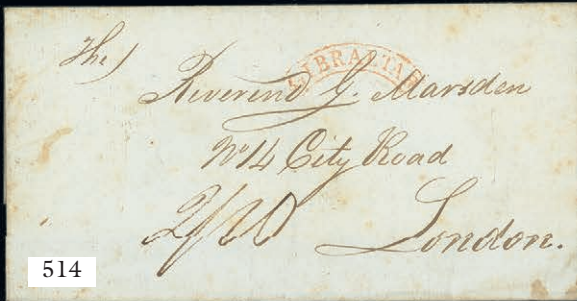 The
GIBRALTAR
Reverend G. Marsden
No 14 City Road
2/10
London.
514